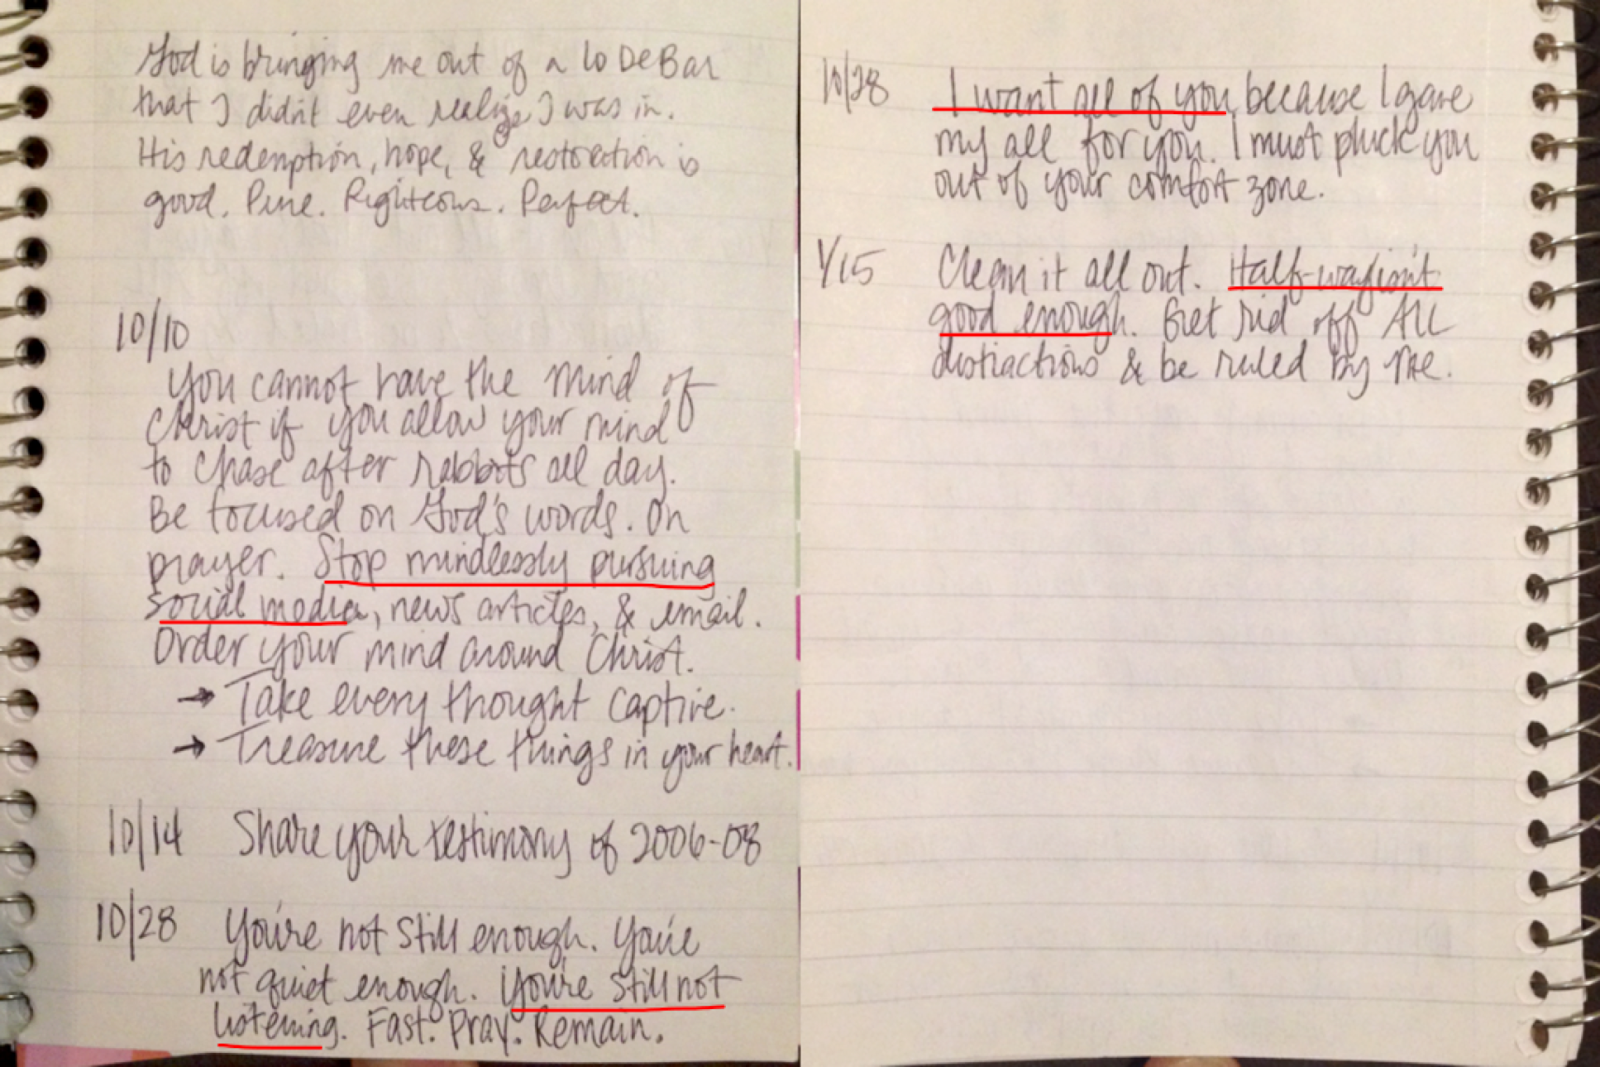 God is bringing me out of a Lo DeBar
that I didn't even realize I was in.
His redemption, hope, & restoration is
good. Pure. Righteous. Perfect.
10/10
You cannot have the mind of
Christ if you allow your mind
to chase after rabbits all day.
Be focused on God's words. On
prayer. Stop mindlessly pursuing
social media, news articles, & email.
Order your mind around Christ.
→ Take every thought captive.
→ Treasure these things in your heart.
10/14 Share your testimony of 2006-08
10/28 You're not still enough. You're
not quiet enough. You're still not
listening. Fast. Pray. Remain.
10/28 I want all of you because I gave
my all for you. I must pluck you
out of your comfort zone.
1/15 Clean it all out. Half-way isn't
good enough. Get rid off ALL
distractions & be ruled by Me.